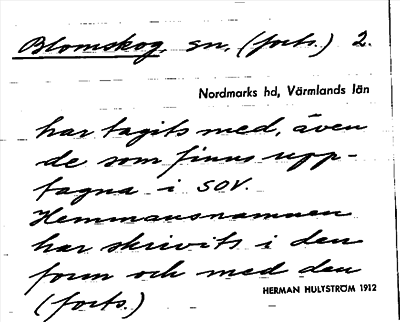 Blomskog, sn, (forts.) 2.
Nordmarks hd, Värmlands län
har tagits med, även
de som finns upp-
tagna i SOV.
Hemmansnamnen
har skrivits i den
form och med den
(forts.)
HERMAN HULTSTRÖM 1912